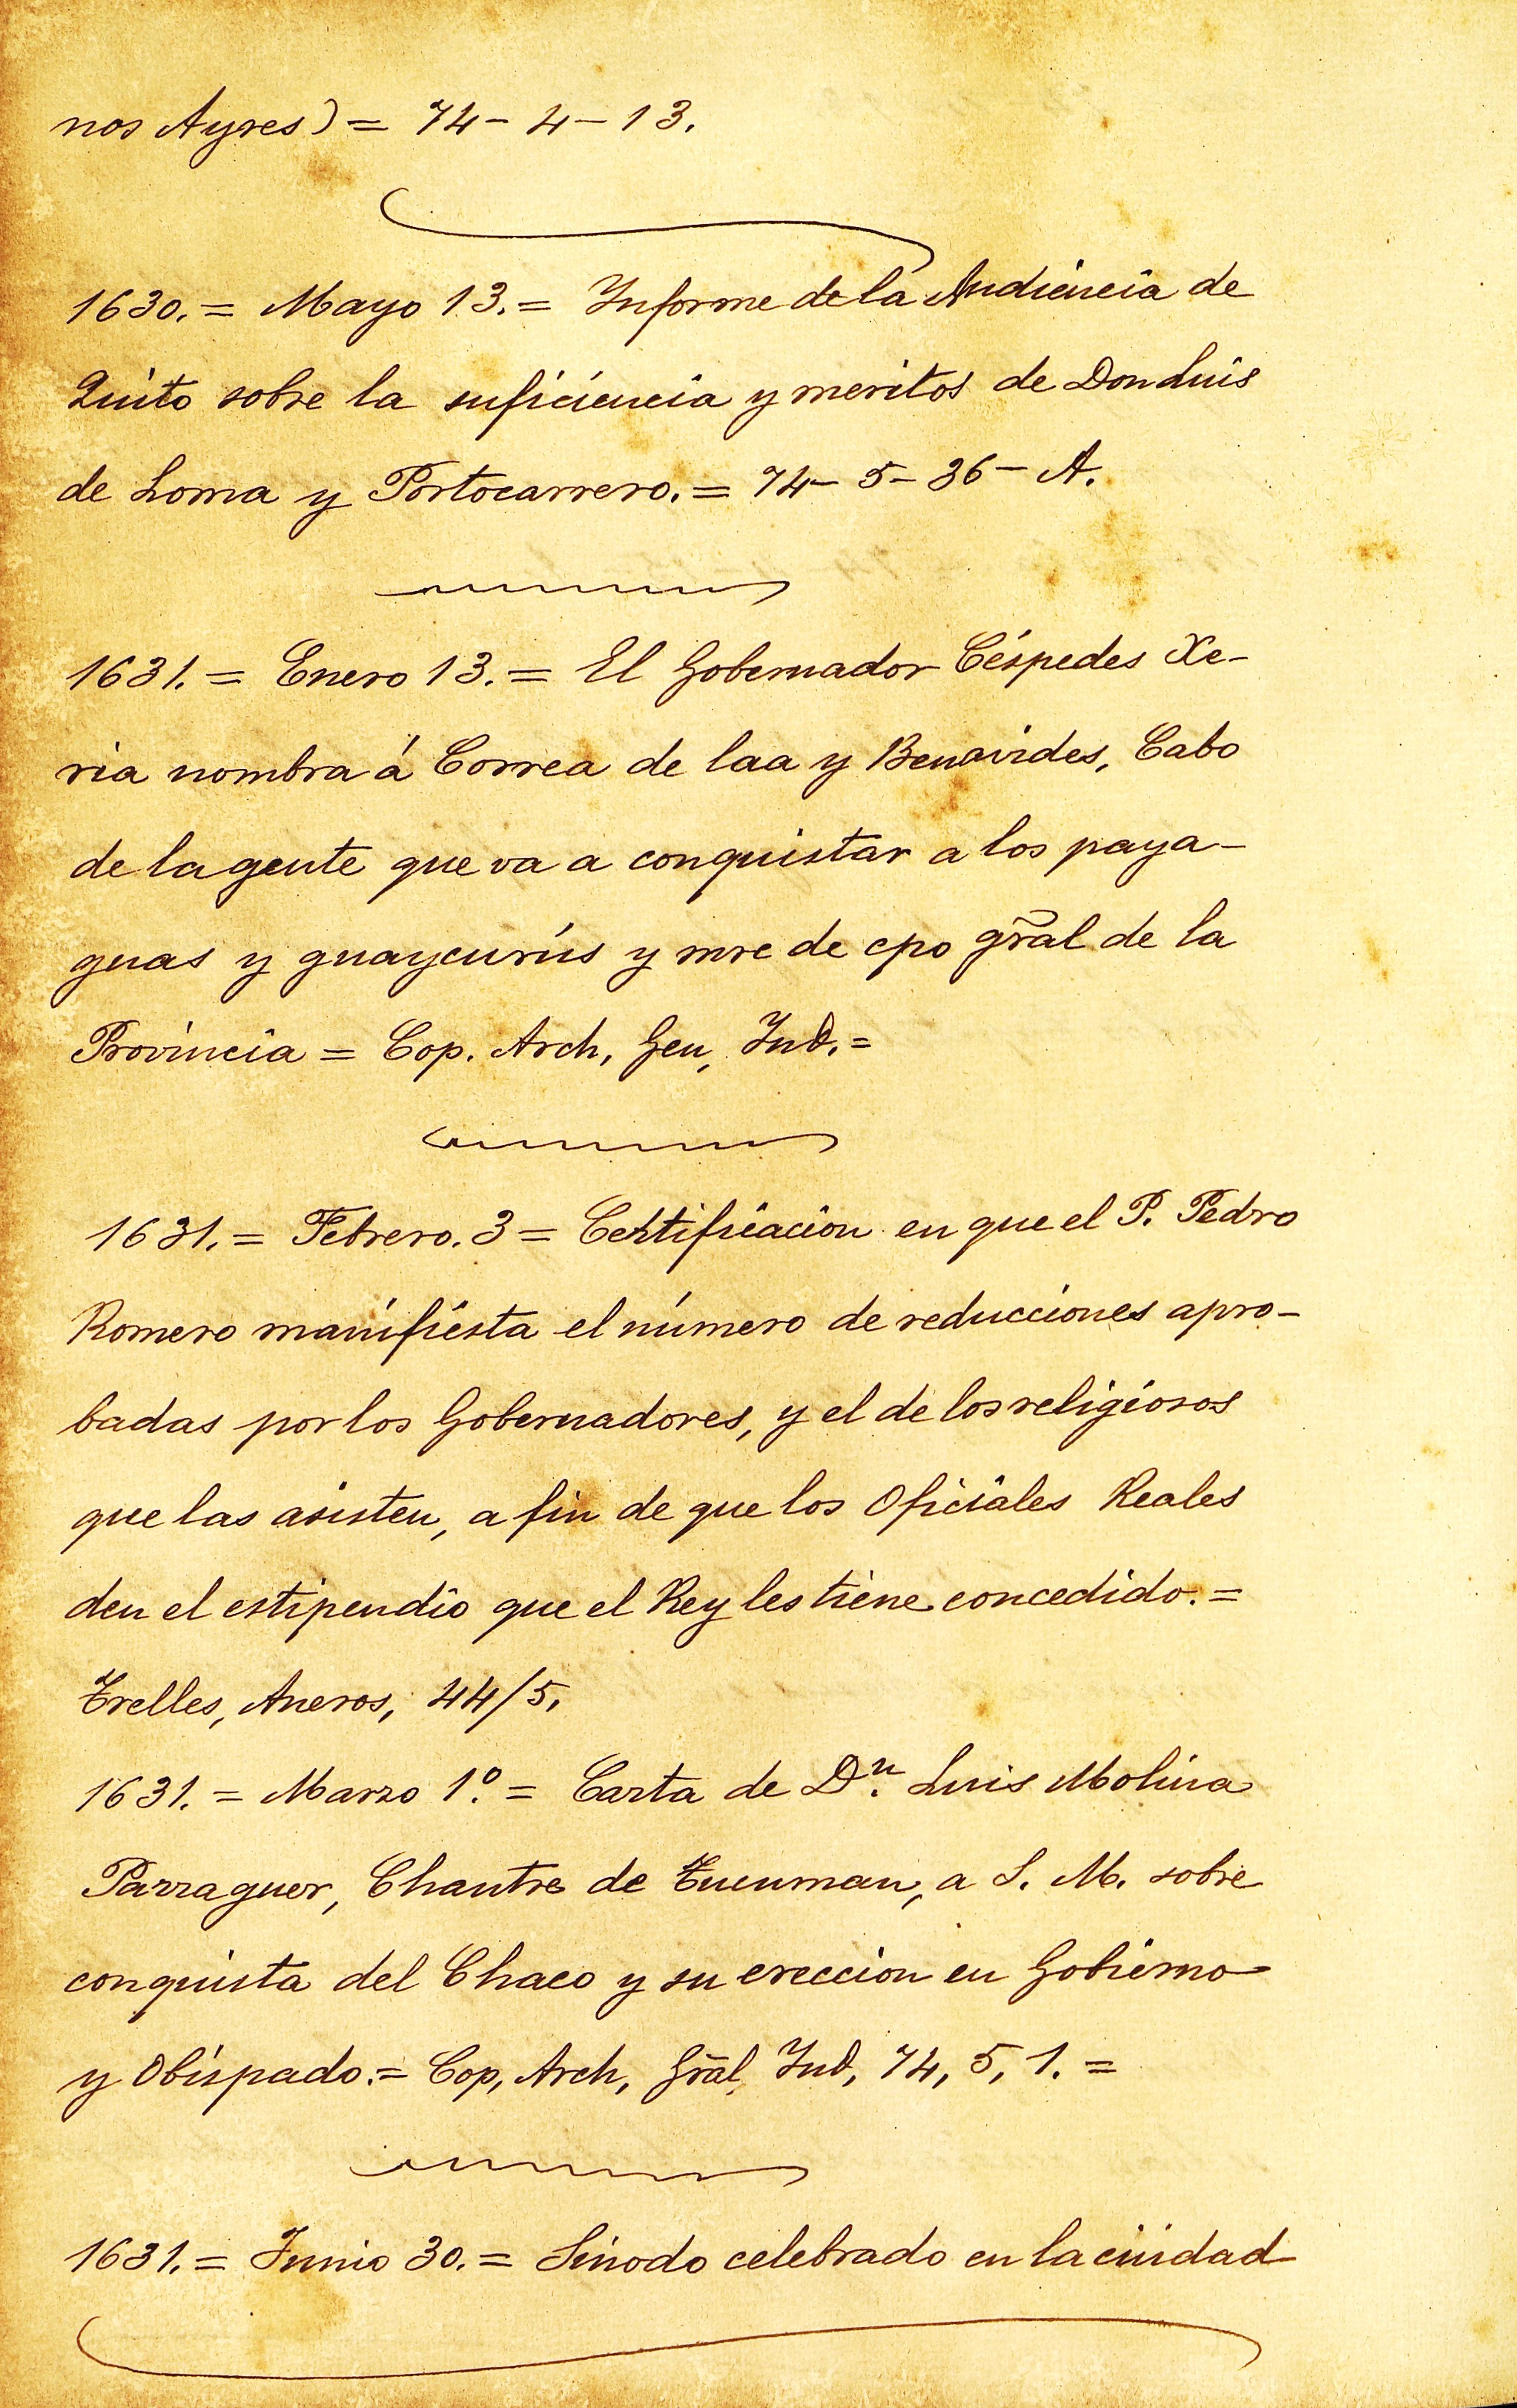 nos Ayres) = 74 - 4 - 13.
1630. = Mayo 13. = Informe de la Audiencia de
Quito sobre la suficiencia y meritos de Don Luis
de Loma y Portocarrero. = 74 - 5 - 36 - A.
1631. = Enero 13. = El Gobernador Céspedes Xe-
ria nombra á Correa de laa y Benavides, Cabo
de la gente que va a conquistar a los paya-
guas y guaycurús y mre de cpo gr̃al de la
Provincia = Cop. Arch, Gen, Ind. =
1631. = Febrero. 3 = Certificacion en que el P. Pedro
Romero manifiesta el número de reducciones apro-
badas por los Gobernadores, y el de los religiosos
que las asisten, a fin de que los Oficiales Reales
den el estipendio que el Rey les tiene concedido. =
Trelles, Aneros, 44/5,
1631. = Marzo 1.º = Carta de D.n Luis Molina
Parraguer, Chantre de Tucuman, a S. M. sobre
conquista del Chaco y su ereccion en Gobierno
y Obispado. = Cop, Arch, Gr̃al, Ind, 74, 5, 1. =
1631. = Junio 30. = Sinodo celebrado en la ciudad